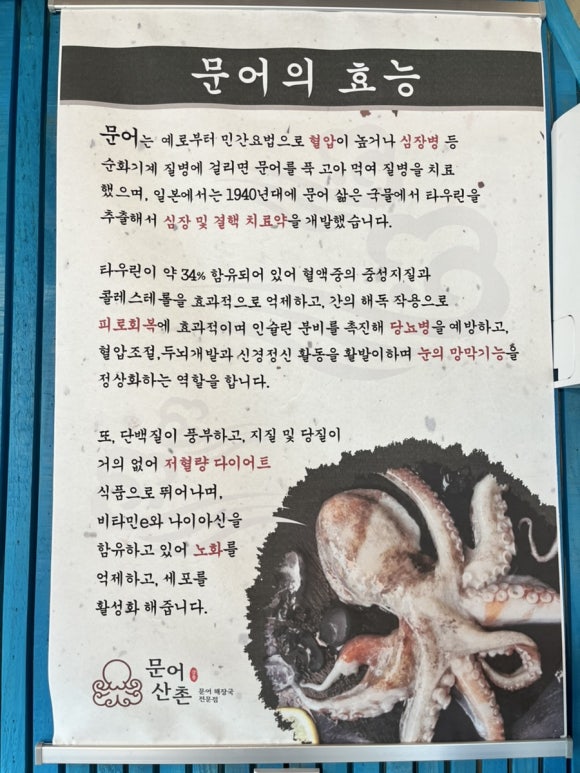 문어의 효능
문어는 예로부터 민간요법으로 혈압이 높거나 심장병 등
순화기계 질병에 걸리면 문어를 푹 고아 먹여 질병을 치료
했으며, 일본에서는 1940년대에 문어 삶은 국물에서 타우린을
추출해서 심장 및 결핵 치료약을 개발했습니다.
타우린이 약 34% 함유되어 있어 혈액중의 중성지질과
콜레스테롤을 효과적으로 억제하고, 간의 해독 작용으로
피로회복에 효과적이며 인슐린 분비를 촉진해 당뇨병을 예방하고,
혈압조절,두뇌개발과 신경정신 활동을 활발이하며 눈의 망막기능을
정상화하는 역할을 합니다.
또, 단백질이 풍부하고, 지질 및 당질이
거의 없어 저혈량 다이어트
식품으로 뛰어나며,
비타민e와 나이아신을
함유하고 있어 노화를
억제하고, 세포를
활성화 해줍니다.
문어
산촌
문어 해장국
전문점